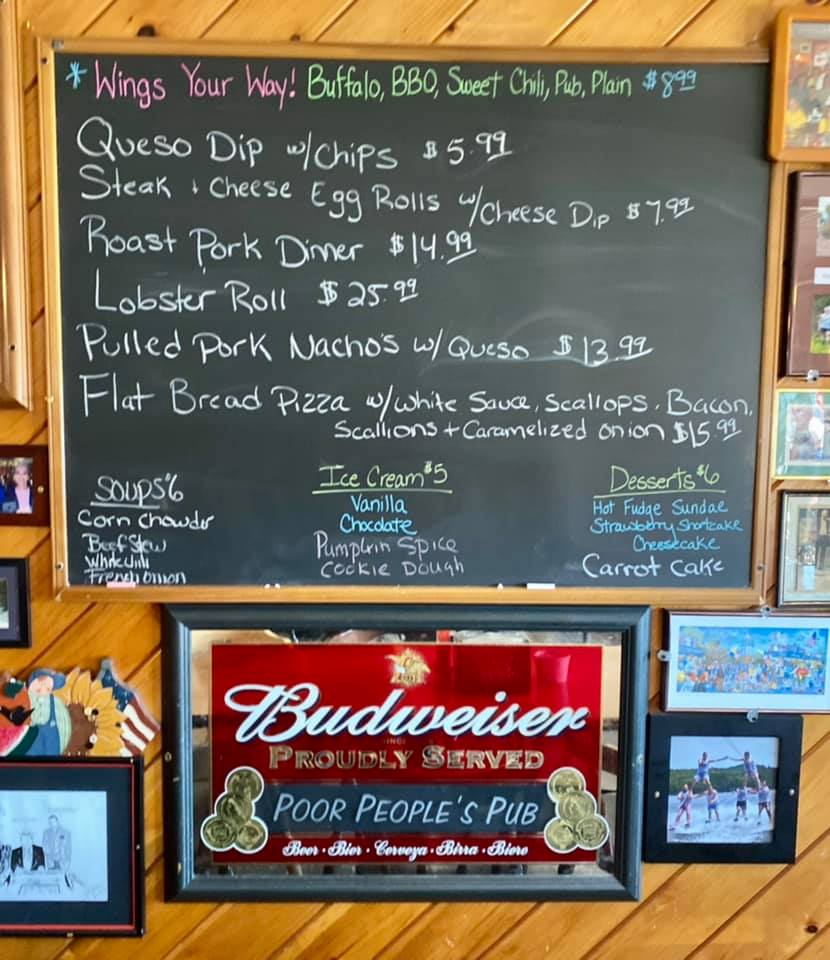 * Wings Your Way! Buffalo, BBQ, Sweet Chili, Pub, Plain $8.99
Queso Dip w/Chips $5.99
Steak + Cheese Egg Rolls w/Cheese Dip $7.99
Roast Pork Dinner $14.99
Lobster Roll $25.99
Pulled Pork Nacho's w/ Queso $13.99
Flat Bread Pizza w/White Sauce, Scallops, Bacon,
Scallions + Caramelized onion $15.99
Soups $6
Corn Chowder
Beef Stew
White Chili
French Onion
Ice Cream $5
Vanilla
Chocolate
Pumpkin Spice
Cookie Dough
Desserts $6
Hot Fudge Sundae
Strawberry Shortcake
Cheesecake
Carrot Cake
Budweiser
PROUDLY SERVED
POOR PEOPLE'S PUB
Beer · Bier · Cerveza · Birra · Biere